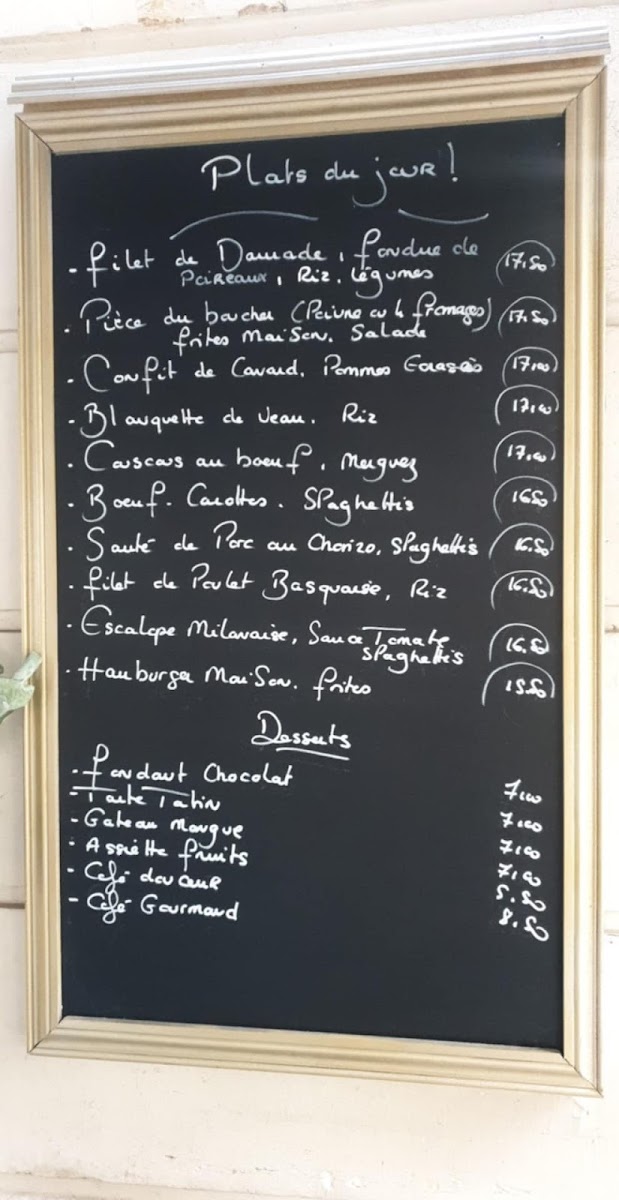 Plats du jour !
- Filet de Daurade, fondue de 17.50
Poireaux, Riz, légumes
- Pièce du boucher (Poivre ou 4 fromages) 17.50
frites Maison. Salade
- Confit de Canard. Pommes Grasses 17,00
- Blanquette de Veau. Riz 17,00
- Couscous au boeuf, Merguez 17,00
- Boeuf - Carottes. Spaghettis 16.50
- Sauté de Porc au Chorizo, Spaghettis 16.50
- filet de Poulet Basquaise, Riz 16.50
- Escalope Milanaise, Sauce Tomate 16.50
Spaghettis
- Hamburger Maison. frites 15.50
Desserts
- fondant Chocolat 7,00
- Tarte Tatin 7,00
- Gateau Mangue 7,00
- Assiette fruits 7,00
- Café douceur 5.50
- Café Gourmand 8.50